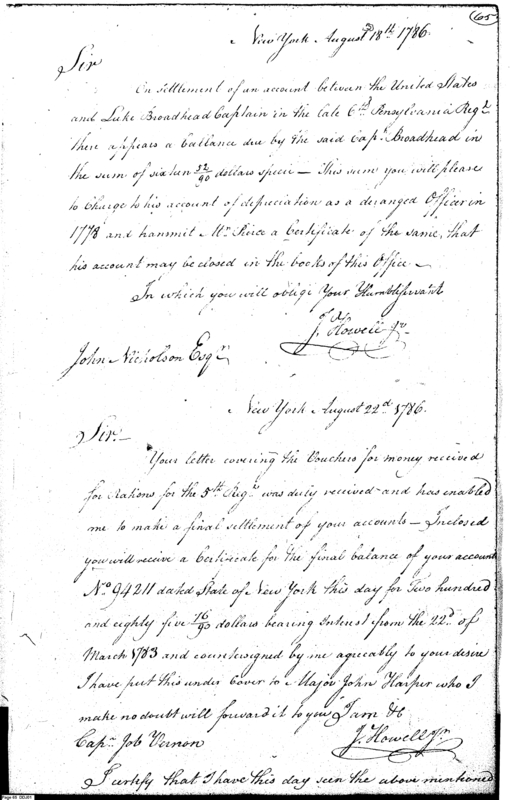 65
New York August 18th 1786.
Sir
On settlement of an account between the United States
and Luke Broadhead Captain in the late 6th Pensylvania Regt
there appears a ballance due by the said Capn Broadhead in
the sum of sixteen 32/90 dollars specie — This sum you will please
to Charge to his account of depreciation as a deranged Officer in
1778 and transmit Mr Pierce a Certificate of the same, that
his account may be closed in the books of this Office —
In which you will oblige Your Humble Servant
J. Howell Jr.
John Nicholson Esqr
New York August 22d 1786.
Sir —
Your letter covering the Vouchers for money received
for Rations for the 5th Regt was duly received and has enabled
me to make a final settlement of your accounts — Inclosed
you will receive a Certificate for the final balance of your account
No 94211 dated State of New York this day for Two hundred
and eighty five 16/90 dollars bearing Interest from the 22d of
March 1783 and countersigned by me agreeably to your desire
I have put this under Cover to Major John Harper who I
make no doubt will forward it to you I am &c
Capn Job Vernon J. Howell Jr
I certify that I have this day seen the above mentioned